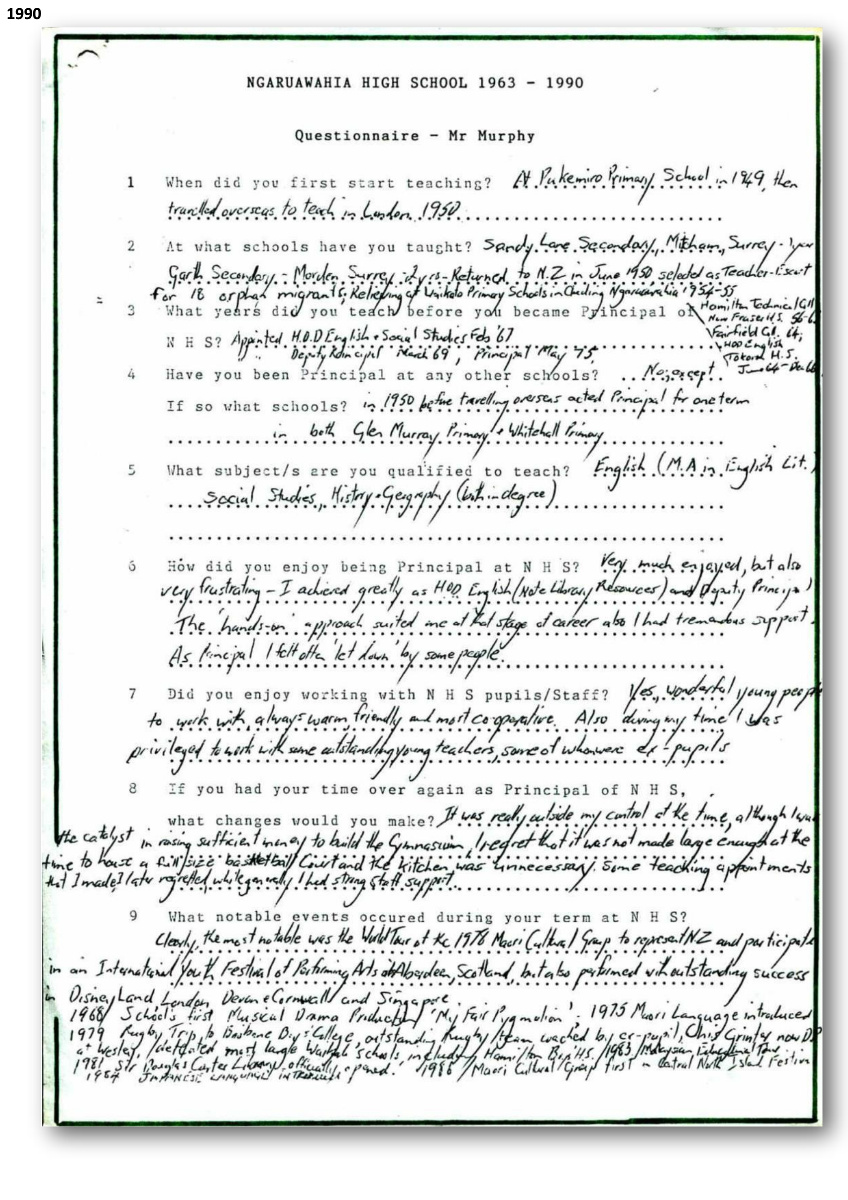 1990
NGARUAWAHIA HIGH SCHOOL 1963 - 1990
Questionnaire - Mr Murphy
1 When did you first start teaching? At Pukemiro Primary School in 1949, then
travelled overseas to teach in London 1950
2 At what schools have you taught? Sandy Lane Secondary, Mitcham, Surrey - 1 year
Garth Secondary - Morden Surrey 2 yrs - Returned to N.Z in June 1950 selected as Teacher-Escort
for 18 orphan migrants; Relieving at Waikato Primary Schools including Ngaruawahia 1954-55
Hamilton Technical Coll
Now Fraser H.S. 56-6
Fairfield Coll. 64,
HOD English
Tokoroa H.S.
June 64 - Dec 66
3 What years did you teach before you became Principal of
N H S? Appointed H.O.D English + Social Studies Feb '67
" " Deputy Principal March 69, Principal May 75,
4 Have you been Principal at any other schools? No, except
If so what schools? in 1950 before travelling overseas acted Principal for one term
in both Glen Murray Primary + Whitehall Primary
5 What subject/s are you qualified to teach? English (M.A in English Lit.)
Social Studies, History + Geography (both in degree)
6 How did you enjoy being Principal at N H S? Very much enjoyed, but also
very frustrating - I achieved greatly as HOD English (Note Library Resources) and Deputy Principal
The 'hands-on' approach suited me at that stage of career also I had tremendous support.
As Principal I felt often 'let down' by some people.
7 Did you enjoy working with N H S pupils/Staff? Yes, wonderful young peop
to work with, always warm, friendly and most co-operative. Also during my time I was
privileged to work with some outstanding young teachers, some of whom were ex-pupils
8 If you had your time over again as Principal of N H S,
what changes would you make? It was really outside my control at the time, although I was
the catalyst in raising sufficient money to build the Gymnasium, I regret that it was not made large enough at the
time to house a full size basketball Court and the kitchen was unnecessary. Some teaching appointments
that I made, I later regretted while generally I had strong staff support.
9 What notable events occured during your term at N H S?
Clearly, the most notable was the World Tour of the 1978 Maori Cultural Group to represent NZ and participate
in an International Youth Festival of Performing Arts at Aberdeen, Scotland, but also performed with outstanding success
in DisneyLand, London, Devon + Cornwall and Singapore.
1968 School's first Musical Drama Production 'My Fair Pygmalion'. 1975 Maori Language introduced
1979 Rugby Trip to Brisbane Boys' College, outstanding Rugby team coached by ex-pupil, Chris Grinter now DP
at Wesley, defeated most large Waikato Schools including Hamilton Boys H.S. 1983 Malaysian Educational Tour
1981 Sir Douglas Carter Library officially opened. 1986 Maori Cultural Group first in Central North Island Festival
1984 JAPANESE LANGUAGE INTRODUCED